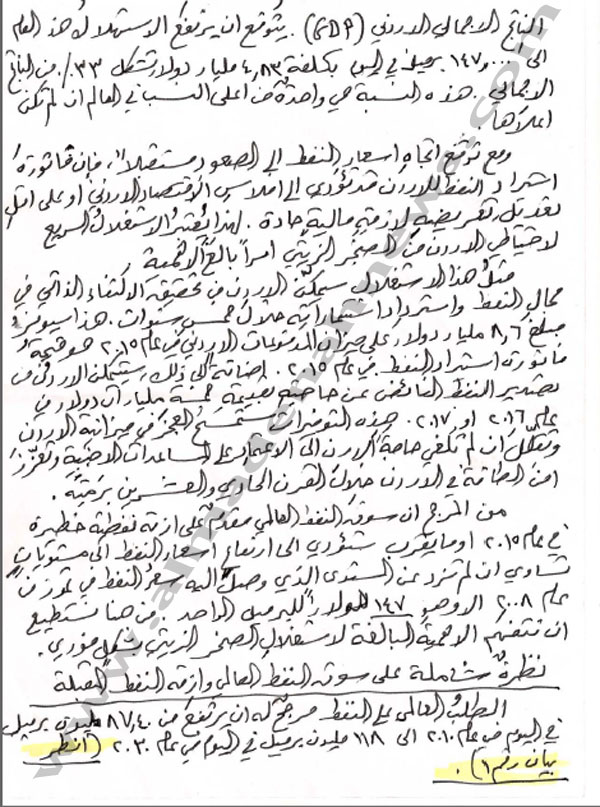 الناتج الاجمالي الاردني (GDP). يتوقع ان يرتفع الاستهلاك هذا العام
الى ١٤٧,٠٠٠ برميل في اليوم بكلفة ٤,٨٣ مليار دولار تشكل ٣٣٪ من الناتج
الاجمالي. هذه النسبة هي واحدة من اعلى النسب في العالم ان لم تكن
اعلاها.
ومع توقع اتجاه اسعار النفط الى الصعود مستقبلاً، فإن فاتورة
استيراد النفط للاردن قد تؤدي الى افلاس الاقتصاد الاردني او على اقل
تقدير تعريضه لازمة مالية حادة. لهذا يعتبر الاستغلال السريع
لاحتياطي الاردن من الصخر الزيتي امراً بالغ الاهمية.
مثل هذا الاستغلال سيمكن الاردن من تحقيق الاكتفاء الذاتي في
مجال النفط واسترداد استثماراته خلال خمس سنوات. هذا سيوفر
مبلغ ٨,٦ مليار دولار على ميزان المدفوعات الاردني في عام ٢٠١٥ هو قيمة
فاتورة استيراد النفط في عام ٢٠١٥. اضافة الى ذلك، سيتمكن الاردن من
تصدير النفط الفائض عن حاجته بقيمة خمسة مليارات دولار في
عام ٢٠١٦ او ٢٠١٧. هذه التوفيرات ستمسح العجز في ميزانية الاردن
وتقلل ان لم تلغي حاجة الاردن الى الاعتماد على المساعدات الاجنبية وتعزز
امن الطاقة في الاردن خلال القرن الحادي والعشرين برمته.
من المرجح ان سوق النفط العالمي مقدم على ازمة نفطية خطيرة
في عام ٢٠١٥ او ما يقرب ستؤدي الى ارتفاع اسعار النفط الى مستويات
تساوي ان لم تزد عن المستوى الذي وصل اليه سعر النفط في تموز من
عام ٢٠٠٨ الا وهو ١٤٧ دولار للبرميل الواحد. من هنا نستطيع
ان نتفهم الاهمية البالغة لاستغلال الصخر الزيتي بشكل فوري.
نظرة شاملة على سوق النفط العالمي وازمة النفط المقبلة
الطلب العالمي على النفط مرجح له ان يرتفع من ٨٧,٤٠ مليون برميل
في اليوم في عام ٢٠١٠ الى ١١٨ مليون برميل في اليوم في عام ٢٠٣٠ (انظر
بيان رقم ١).
www.almadenahnews.com